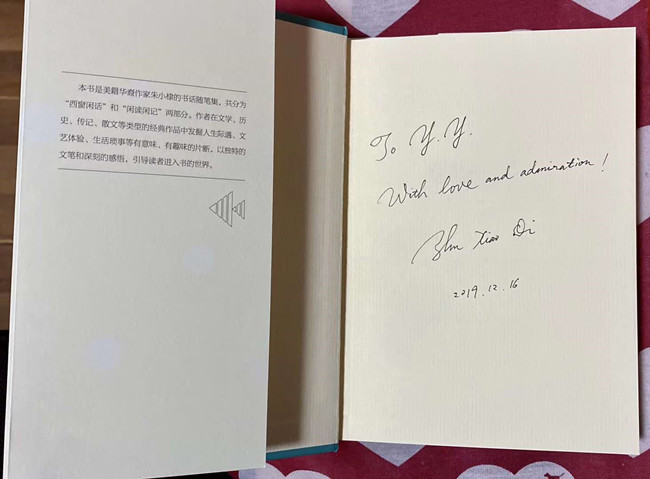 本书是美籍华裔作家朱小棣的书话随笔集，共分为
“西窗闲话”和“闲读闲记”两部分。作者在文学、历
史、传记、散文等类型的经典作品中发掘人生际遇、文
艺体验、生活琐事等有意味、有趣味的片断，以独特的
文笔和深刻的感悟，引导读者进入书的世界。
To Y. Y.
With love and admiration!
Zhu Xiao Di
2019.12.16